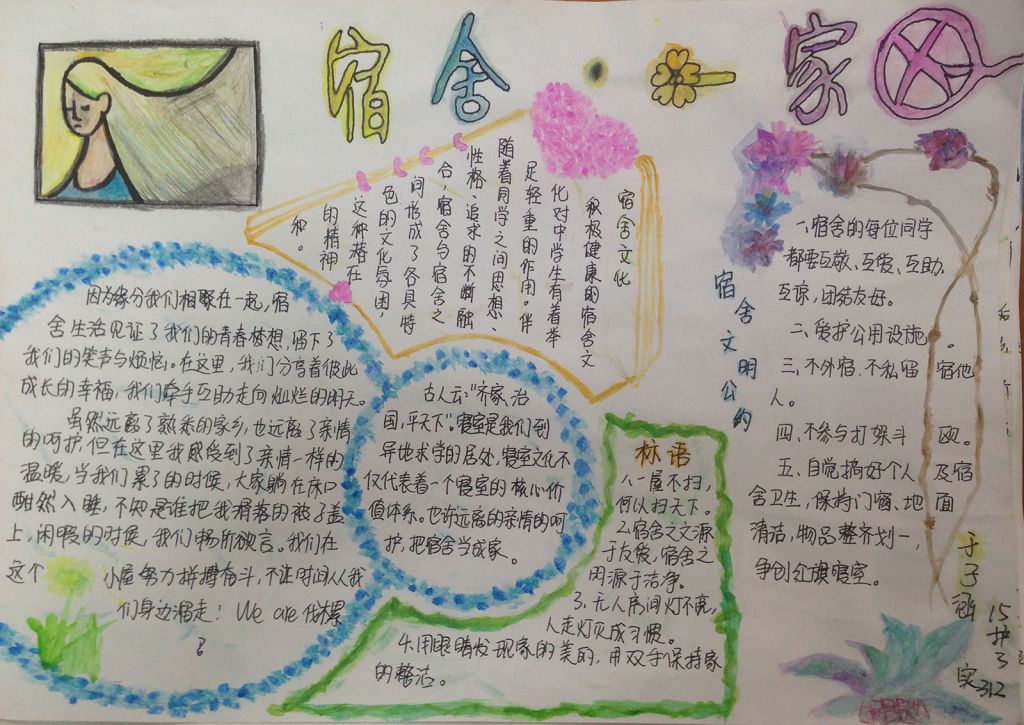 宿舍·家
因为缘分我们相聚在一起,宿
舍生活见证了我们的青春梦想,留下了
我们的笑声与烦恼。在这里,我们分享着彼此
成长的幸福,我们牵手互助走向灿烂的明天。
虽然远离了熟悉的家乡,也远离了亲情
的呵护,但在这里我感受到了亲情一样的
温暖,当我们累了的时候,大家躺在床上
酣然入睡,不知是谁把我滑落的被子盖
上,闲暇的时候,我们畅所欲言。我们在
这个 小屋努力拼搏奋斗,不让时间从我
们身边溜走! We are 伐木累
宿舍文化
积极健康的宿舍文
化对中学生有着举
足轻重的作用。伴
随着同学之间思想、
性格、追求的不断融
合,宿舍与宿舍之
间形成了各具特
色的文化氛围,
这种潜在
的精神
和。
古人云:“齐家、治
国,平天下”。寝室是我们到
异地求学的居处,寝室文化不
仅代表着一个寝室的核心价
值体系。也许远离的亲情的呵
护,把宿舍当成家。
标语
1.一屋不扫,
何以扫天下。
2.宿舍之文源
于友爱,宿舍之
明源于洁净。
3.无人房间灯不亮,
人走灯灭成习惯。
4.用眼睛发现家的美丽,用双手保持家
的整洁。
宿舍文明公约
一.宿舍的每位同学
都要互敬、互爱、互助、
互谅,团结友好。
二、爱护公用设施。
三、不外宿,不私留宿他
人。
四、不参与打架斗殴。
五、自觉搞好个人及宿
舍卫生,保持门窗、地面
清洁,物品整齐划一,
争创红旗寝室。
于子涵
15护3
实312